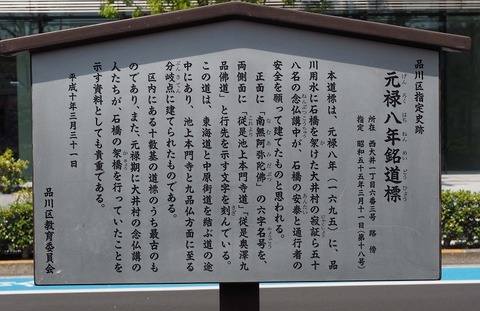 品川区指定史跡
元禄八年銘道標
げんろくはちねんめいどうひょう
所在 西大井一丁目六番三号 路傍
指定 昭和五十五年三月十一日(第十八号)
本道標は、元禄八年(一六九五)に、品
川用水に石橋を架けた大井村の寂証ら五十
八名の念仏講中が、石橋の安泰と通行者の
安全を願って建てたものと思われる。
正面に「南無阿弥陀佛」の六字名号を、
両側面に「従是池上本門寺道」「従是奥澤九
品佛道」と行先を示す文字を刻んでいる。
この道は、東海道と中原街道を結ぶ道の途
中にあり、池上本門寺と九品仏方面に至る
分岐点に建てられたものである。
区内にある十数基の道標のうち最古のも
のであり、また、元禄期に大井村の念仏講の
人たちが、石橋の架橋を行っていたことを
示す資料としても貴重である。
平成十年三月三十一日
品川区教育委員会